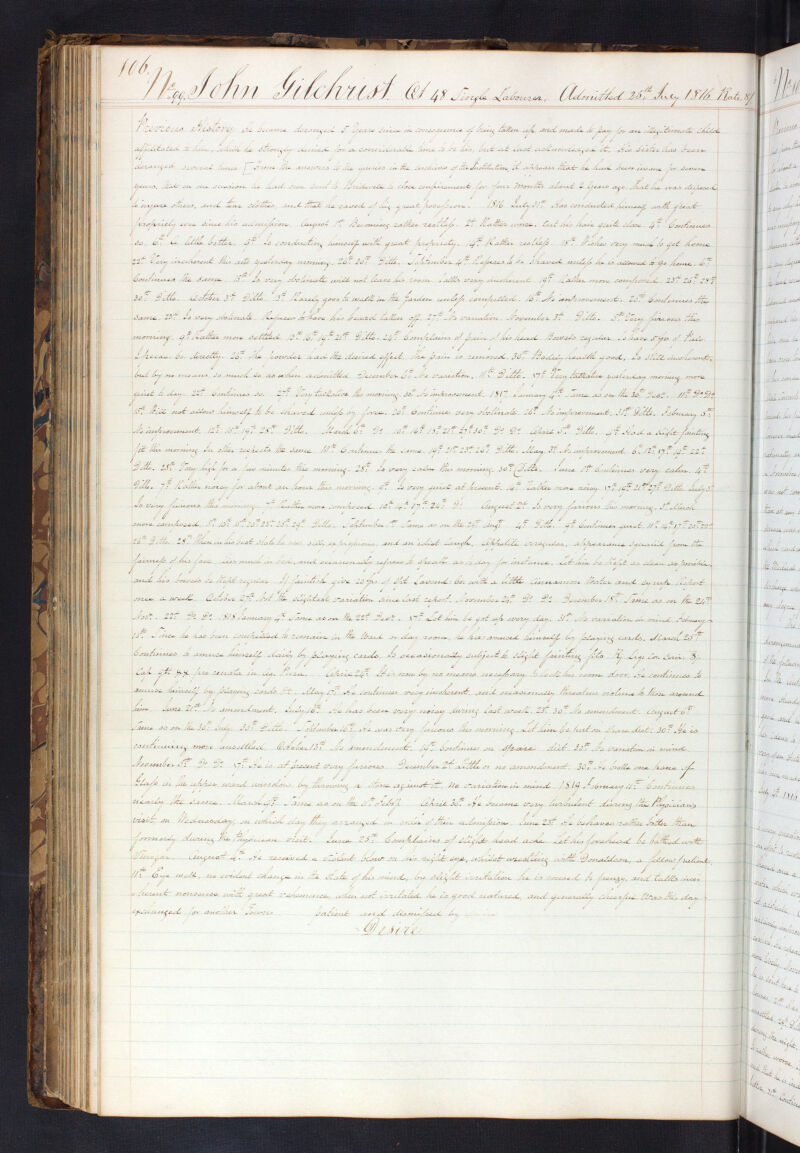 106.
No. 99. John Gilchrist. Æt 48 Single Labourer. Admitted 25th July 1816. Rate 8/
Previous History. He became deranged 5 Years since in consequence of being taken up and made to pay for an illegitimate child
affiliated to him, which he strongly denied for a considerable time to be his, but at last acknowledged it. His Sister has been
deranged several times. From the answers to the queries in the archives of the Institution it appears that he had been insane for seven
years, that on one occasion he had been sent to Bridewell to close confinement for four months about 2 Years ago, that he was disposed
to injure others, and tear clothes, and that he raved of his great possessions. 1816 July 31st Has conducted himself with great
propriety ever since his admission. August 1st Becoming rather restless. 2d Rather worse, tho' his hair quite close. 4th Continues
so. 6th A little better. 9th Is conducting himself with great propriety. 14th Rather restless. 18th Wishes very much to get home
22d Very incoherent this acts yesterday morning. 26th 30th Ditto. September 4th Refuses to be Shaved unless he is allowed to go home. 6th
Continues the same. 13th Is very obstinate will not leave his room talks very incoherent 19th Rather more composed. 23d 26th 28th
30th Ditto. October 3d Ditto. 9th Rarely goes to walk in the Garden unless compelled. 16th No improvement. 20th Continues the
same. 23d Is very obstinate. Refuses to have his beard taken off. 27th No variation. November 3d Ditto. 5th Very furious this
morning. 9th Rather more settled. 13th 16th 19th 21st Ditto. 24th Complains of pain of his head Bowels regular.
26th The powder had the desired effect. The pain is removed. 30th Bodily health good, Is still incoherent
but by no means so much so as when admitted December 6th No variation. 11th Ditto. 17th Very talkative yesterday morning more
quiet to day. 22d Continues so. 27th Very talkative this morning. 30th No improvement. 1817. January 4th Same as on the 30th Decr. 11th Do Do
15th Will not allow himself to be shaved unless by force. 20th Continues very obstinate. 26th No improvement. 31st Ditto. February 5th
No improvement. 12th 18th 19th 25th Ditto. March 6th Do 10th 14th 18th 21st 27th 30th Do Do April 3d Ditto. 4th Had a slight fainting
fit this morning. In other respects the same. 10th Continues the same. 19th 21st 23d 26th Ditto. May 3d No improvement. 6th 12th 17th 19th 22d
Ditto. 25th Very high for a few minutes this morning. 28th Is very calm this morning. 30th Ditto. June 1st Continues very calm. 4th
Ditto. 7th Rather noisy for about an hour this morning. 9th Is very quiet at present. 14th Rather more noisy. 17th 19th 21st 27th Ditto July 3d
Is very furious this morning. 7th Rather more composed. 10th 14th 17th 24th Do August 2d Is very furious this morning. 5th Much
more composed. 8th 13th 16th 20th 23d 25th 29th Ditto. September 1st Same as on the 29th Augt 4th Ditto. 9th Continues quiet. 11th 14th 17th 20th 22d
26th Ditto. 28th When in his best state he has silly expressions, and an idiot laugh. Appetite irregular, appearance squalid from the
fairness of his face. Lies much in bed, and occasionally refuses to speak as to day for instance. Let him be kept as clean as possible
and his bowels be kept regular. If faintish give 20 gs of Spt Lavend. Co with a little Cinnamon Water and Syrup Report
once a week. October 27th Not the slightest variation since last report. November 24th Do Do December 18th Same as on the 24th
Novr. 22d Do Do 1818 January 4th Same as on the 22d Decr. 17th Let him be got up every day. 31st No variation in mind February
10th Since he has been compelled to remain in the Ward or day room, he has amused himself by playing cards. March 25th
Continues to amuse himself daily by playing cards. Is occasionally subject to slight fainting fits.
April 24th It is now by no means necessary to lock his room door. He continues to
amuse himself by playing cards &c. May 17th He continues very incoherent, and occasionally threatens violence to those around
him. June 21st No amendment. July 16th He has been very noisy during last week. 23d 30th No amendment. August 6th
Same as on the 30th July. 30th Ditto. September 16th He was very furious this morning. Let him be put on spare diet. 30th He is
continuing more unsettled. October 13th No amendment. 19th Continues on spare diet. 23d No variation in mind.
November 8th Do Do 17th He is at present very furious. December 2d Little or no amendment. 30th He broke one pane of
Glass in the upper ward window by throwing a stone against it. No variation in mind. 1819 February 4th Continues
nearly the same. March 9th Same as on the 4th Feby. April 30th He became very turbulent during the Physicians
visit on Wednesday, on which day they arranged in order of their admission. June 23d He behaves rather better than
formerly during the Physicians visit. June 25th Complains of slight head ache. Let his forehead be bathed with
Vinegar. August 4th He received a violent blow on his right eye, whilst wrestling with Donaldson, a fellow patient.
11th Eye well, no evident change in the state of his mind, by slight irritation he is roused to frenzy, and talks inco-
herent nonsense with great vehemence, when not irritated he is good natured, and generally cheerful. Was this day
exchanged for another Town's patient and dismissed by
Desire